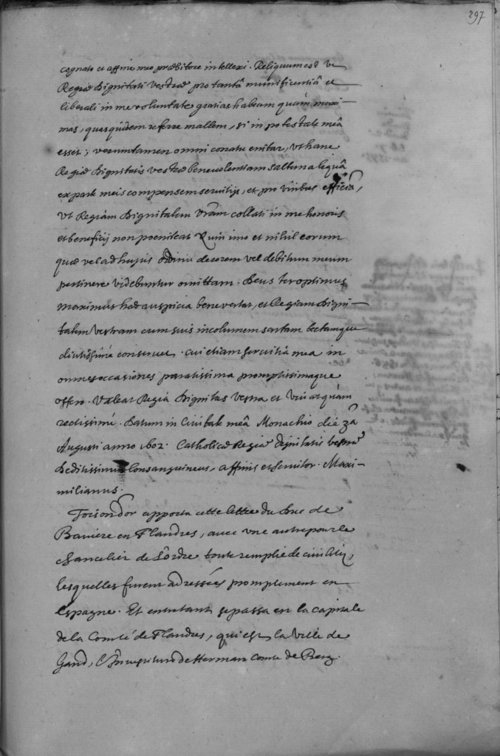 297
cognato et affini meo præbitore intellexi. Reliquum est vt
Regiæ Dignitati Vestræ pro tanta munificentiâ et
liberali in me voluntate gratias habeam quàm maxi-
mas, quas quidem referre mallem, si in potestate meâ
esset; veruntamen omni conatu enitar, vt hanc
Regiæ Dignitatis Vestræ beneuolentiam saltem aliquâ
ex parte meis compensem seruitijs, et pro viribus efficiã,
vt Regiam Dignitatem Vram collati in me honoris
et beneficij non poeniteat Quin imo et nihil eorum
quæ vel ad huius ordinis decorem vel debitum meum
pertinere videbuntur omittam. Deus ter optimus
maximus hæc auspicia bene vertat, et Regiam Digni-
tatem Vestram cum suis incolumem sartam tectamque
diutissimè conseruet. Cui etiam seruitia mea in
omnes occasiones paratissima promptissimaque
offero. Valeat Regia Dignitas Vestra et viuat quàm
rectissimè. Datum in Ciuitate meâ Monachio die
Augusti anno 1602. Catholicæ Regiæ dignitatis vestræ
Deditissimus Consanguineus, affinis et seruitor. Maxi-
milianus.
apporta cette lettre du Duc de
Bauiere en Flandres, auec vne autre pour le
chancelier de l'ordre toute remplie de ciuilitez,
lesquelles furent adressées promptement en
Espagne. Et entretant se passa en la capitale
de la Comté de Flandres, qui est la Ville de
Gand, de Herman Conte de Berg.